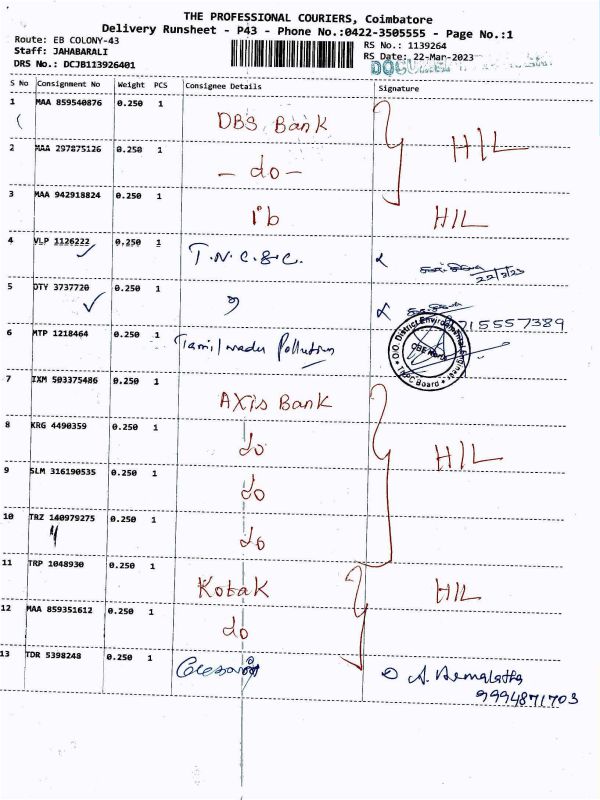 THE PROFESSIONAL COURIERS, Coimbatore
Delivery Runsheet - P43 - Phone No.:0422-3505555 - Page No.:1
Route: EB COLONY-43
Staff: JAHABARALI
DRS No.: DCJB113926401
RS No.: 1139264
RS Date: 22-Mar-2023
S No Consignment No Weight PCS Consignee Details Signature
1 MAA 859540876 0.250 1 DBS Bank HIL
2 MAA 297875126 0.250 1 - do -
3 MAA 942918824 0.250 1 ib HIL
4 VLP 1126222 0.250 1 T.N.C.S.C. 22/3/23
5 DTY 3737720 0.250 1
6 MTP 1218464 0.250 1 Tamilnadu Pollution
O/O. District Environmental Engineer
CBE North
TNPC Board
7 IXM 503375486 0.250 1 AXis Bank
8 KRG 4490359 0.250 1 do HIL
9 SLM 316190535 0.250 1 do
10 TRZ 140979275 0.250 1 do
11 TRP 1048930 0.250 1 Kotak HIL
12 MAA 859351612 0.250 1 do
13 TDR 5398248 0.250 1 A. Hemalatha
9994871703